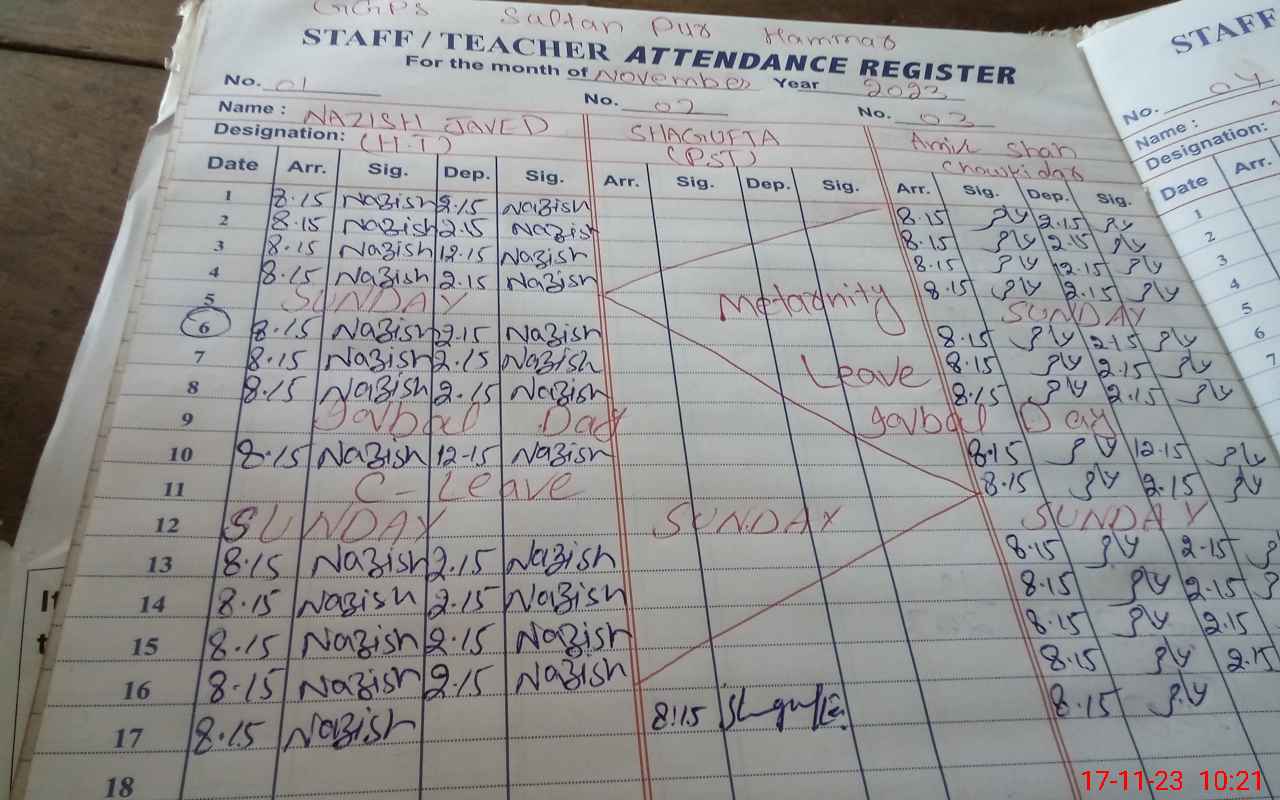 GGPS Sultan Pur Hammar
STAFF / TEACHER ATTENDANCE REGISTER
For the month of November Year 2023
No. 01 No. 02 No. 03
Name : NAZISH JAVED SHAGUFTA Amir Shah
Designation: (H.T) (PST) Chowkidar
Date Arr. Sig. Dep. Sig. Arr. Sig. Dep. Sig. Arr. Sig. Dep. Sig.
1 8.15 Nazish 2.15 Nazish 8.15 2.15
2 8.15 Nazish 2.15 Nazish 8.15 2.15
3 8.15 Nazish 12.15 Nazish 8.15 12.15
4 8.15 Nazish 2.15 Nazish 8.15 2.15
5 SUNDAY Metadnity SUNDAY
6 8.15 Nazish 2.15 Nazish 8.15 2.15
7 8.15 Nazish 2.15 Nazish Leave 8.15 2.15
8 8.15 Nazish 2.15 Nazish 8.15 2.15
9 Iqvbal Day Iqvbal Day
10 8.15 Nazish 12-15 Nazish 8.15 12.15
11 C-Leave 8.15 2.15
12 SUNDAY SUNDAY SUNDAY
13 8.15 Nazish 2.15 Nazish 8.15 2-15
14 8.15 Nazish 2.15 Nazish 8.15 2.15
15 8.15 Nazish 2.15 Nazish 8.15 2.15
16 8.15 Nazish 2.15 Nazish 8.15 2.15
17 8.15 Nazish 8:15 Shagufta 8.15
18
STAFF
No. 04
Name :
Designation:
Date Arr.
1
2
3
4
5
7
17-11-23 10:21